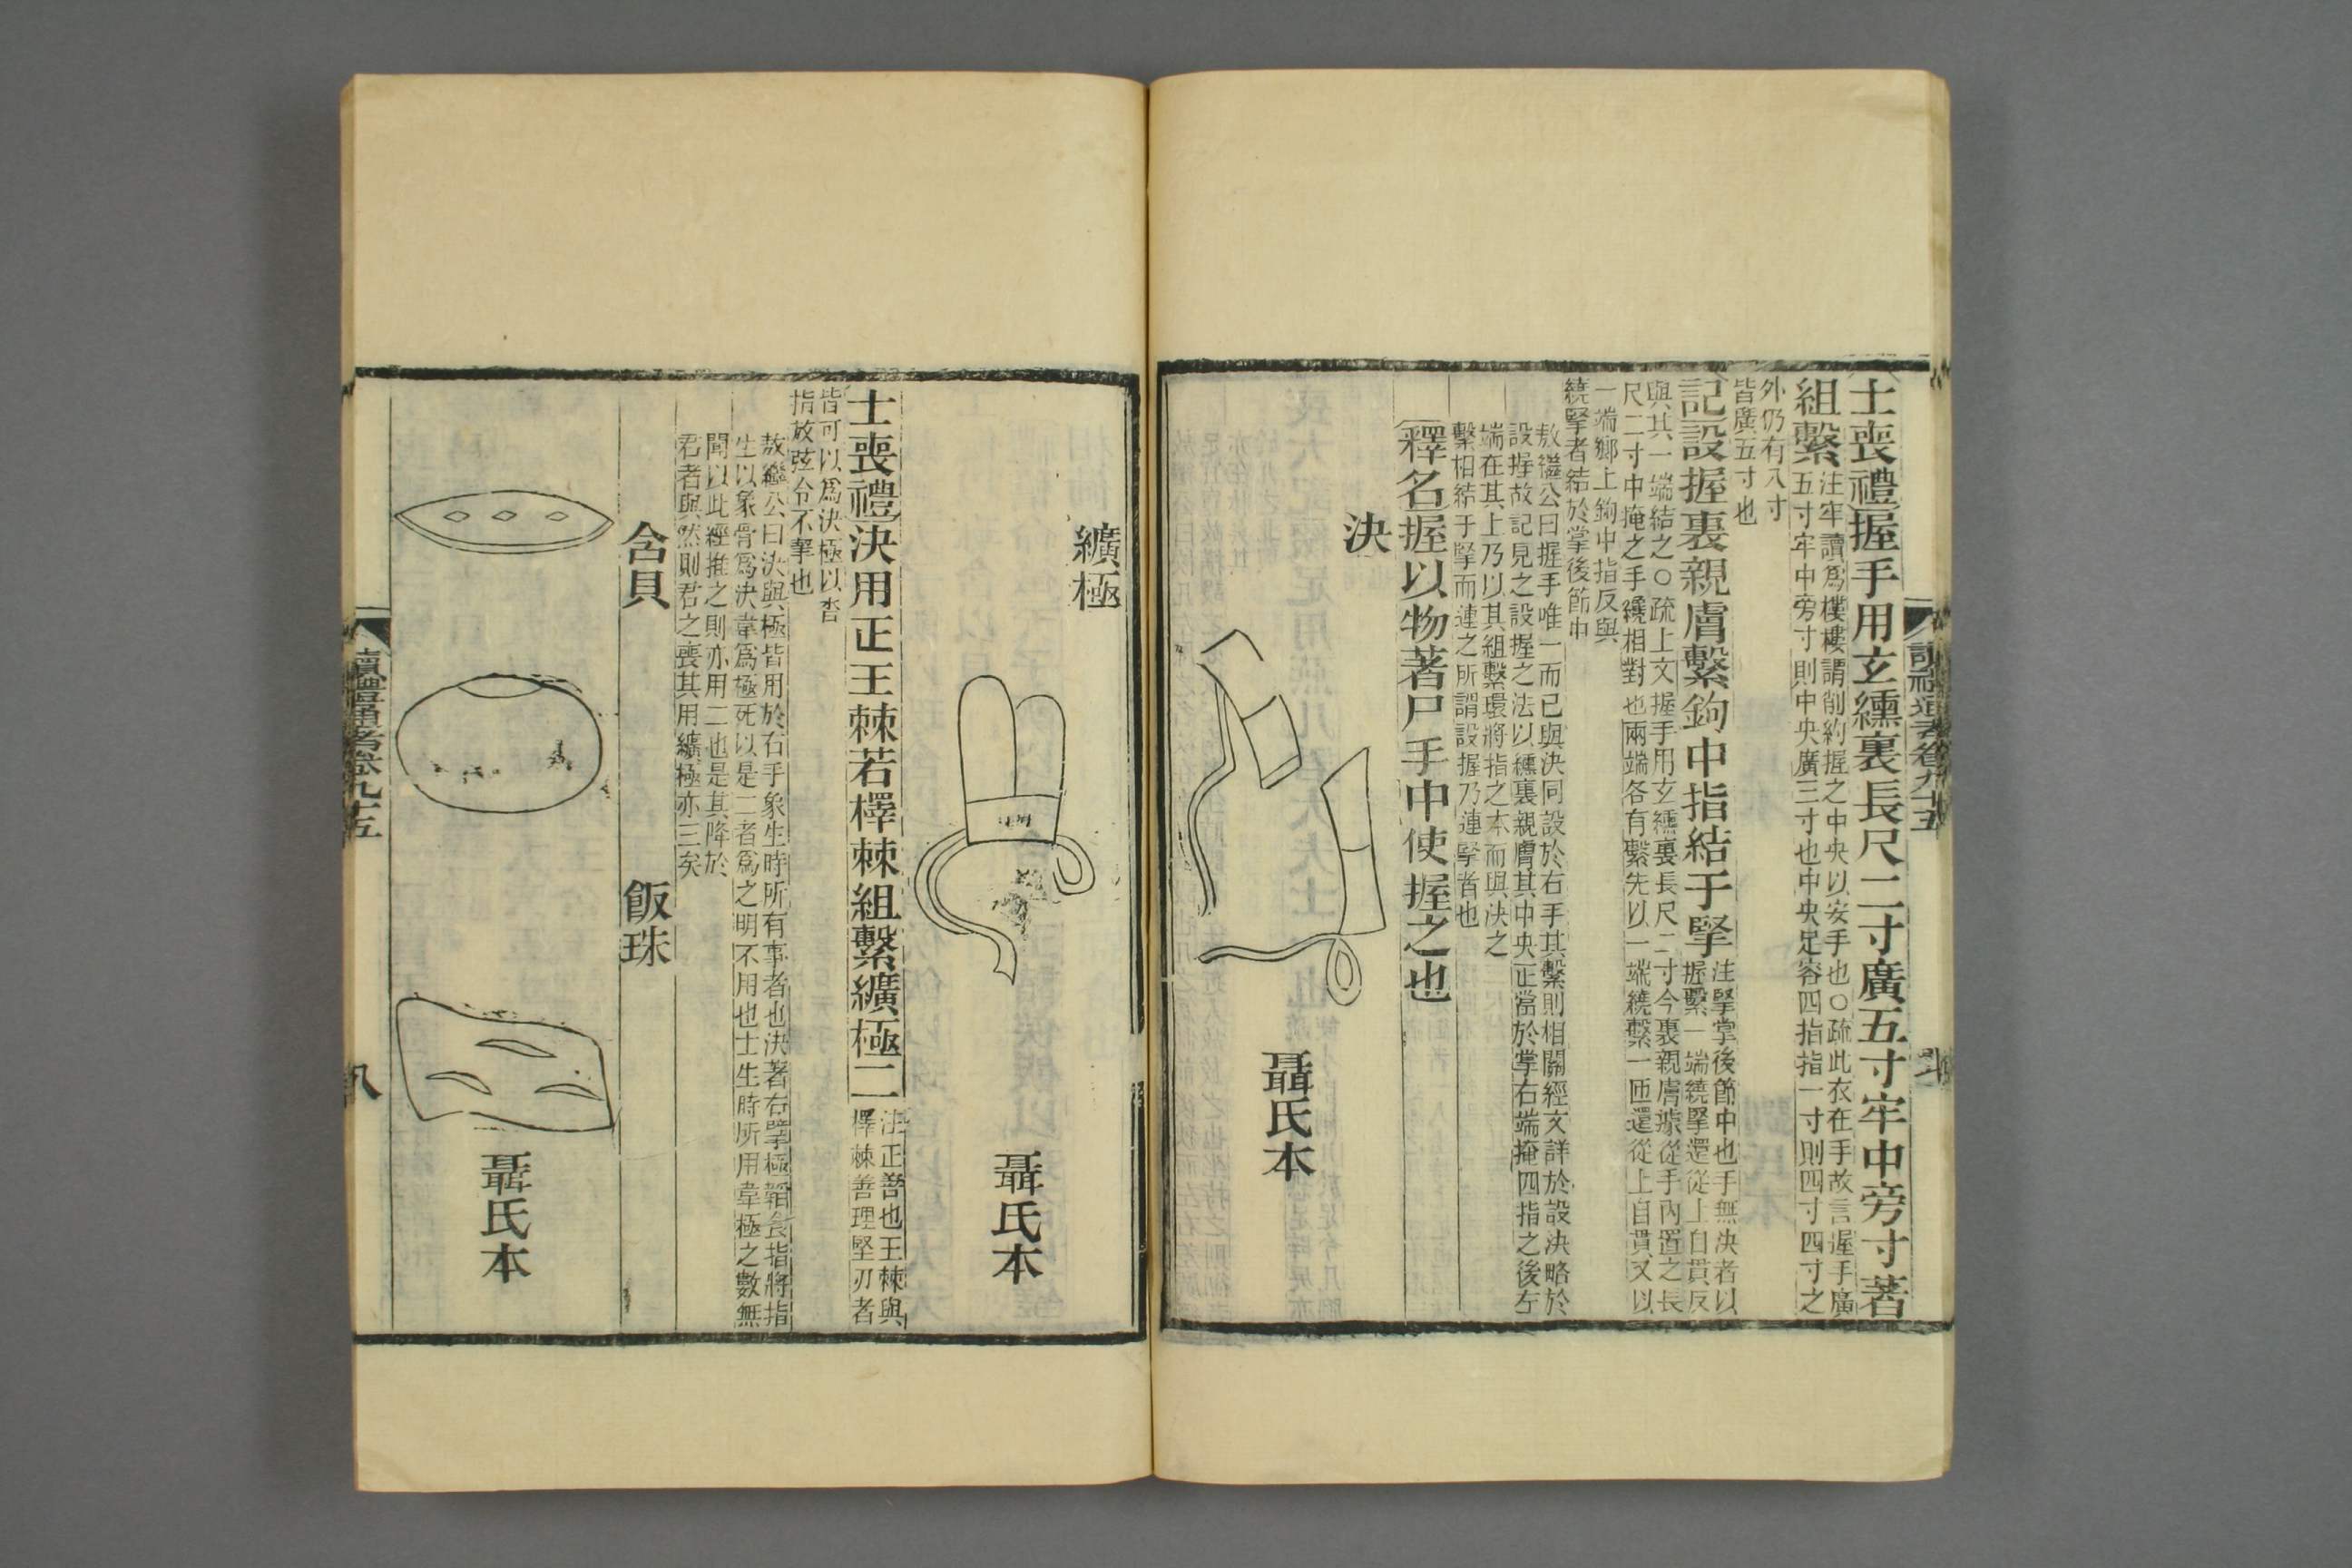 士喪禮握手用玄纁裏長尺二寸廣五寸牢中旁寸著
組繫
注牢讀爲樓樓謂削約握之中央以安手也○疏此衣在手故言握手廣
五寸牢中旁寸則中央廣三寸也中央足容四指指一寸則四寸四寸之
外仍有八寸
皆廣五寸也
記設握裏親膚繫鉤中指結于掔
注掔掌後節中也手無決者以
握繫一端繞掔還從上自貫反
與其一端結之○疏上文握手用玄纁裏長尺二寸今裏親膚據從手內置之長
尺二寸中掩之手纔相對也兩端各有繫先以一端繞繫一匝還從上自貫又以
一端鄉上鉤中指反與
繞掔者結於掌後節中
敖繼公曰握手唯一而已與決同設於右手其繫則相關經文詳於設決略於
設握故記見之設握之法以纁裏親膚其中央正當於掌右端掩四指之後左
端在其上乃以其組繫環將指之本而與決之
繫相結于掔而連之所謂設握乃連掔者也
釋名握以物著尸手中使握之也
決
聶氏本
讀禮通考卷九十五
纊極
聶氏本
士喪禮決用正王棘若檡棘組繫纊極二
注正善也王棘與
檡棘善理堅刃者
皆可以爲決極以沓
指放弦令不挈也
敖繼公曰決與極皆用於右手象生時所有事者也決著右擘極韜食指將指
生以象骨爲決韋爲極死以是二者爲之明不用也士生時所用韋極之數無
聞以此經推之則亦用二也是其降於
君者與然則君之喪其用纊極亦三矣
含貝
飯珠
聶氏本
讀禮通考卷九十五
八